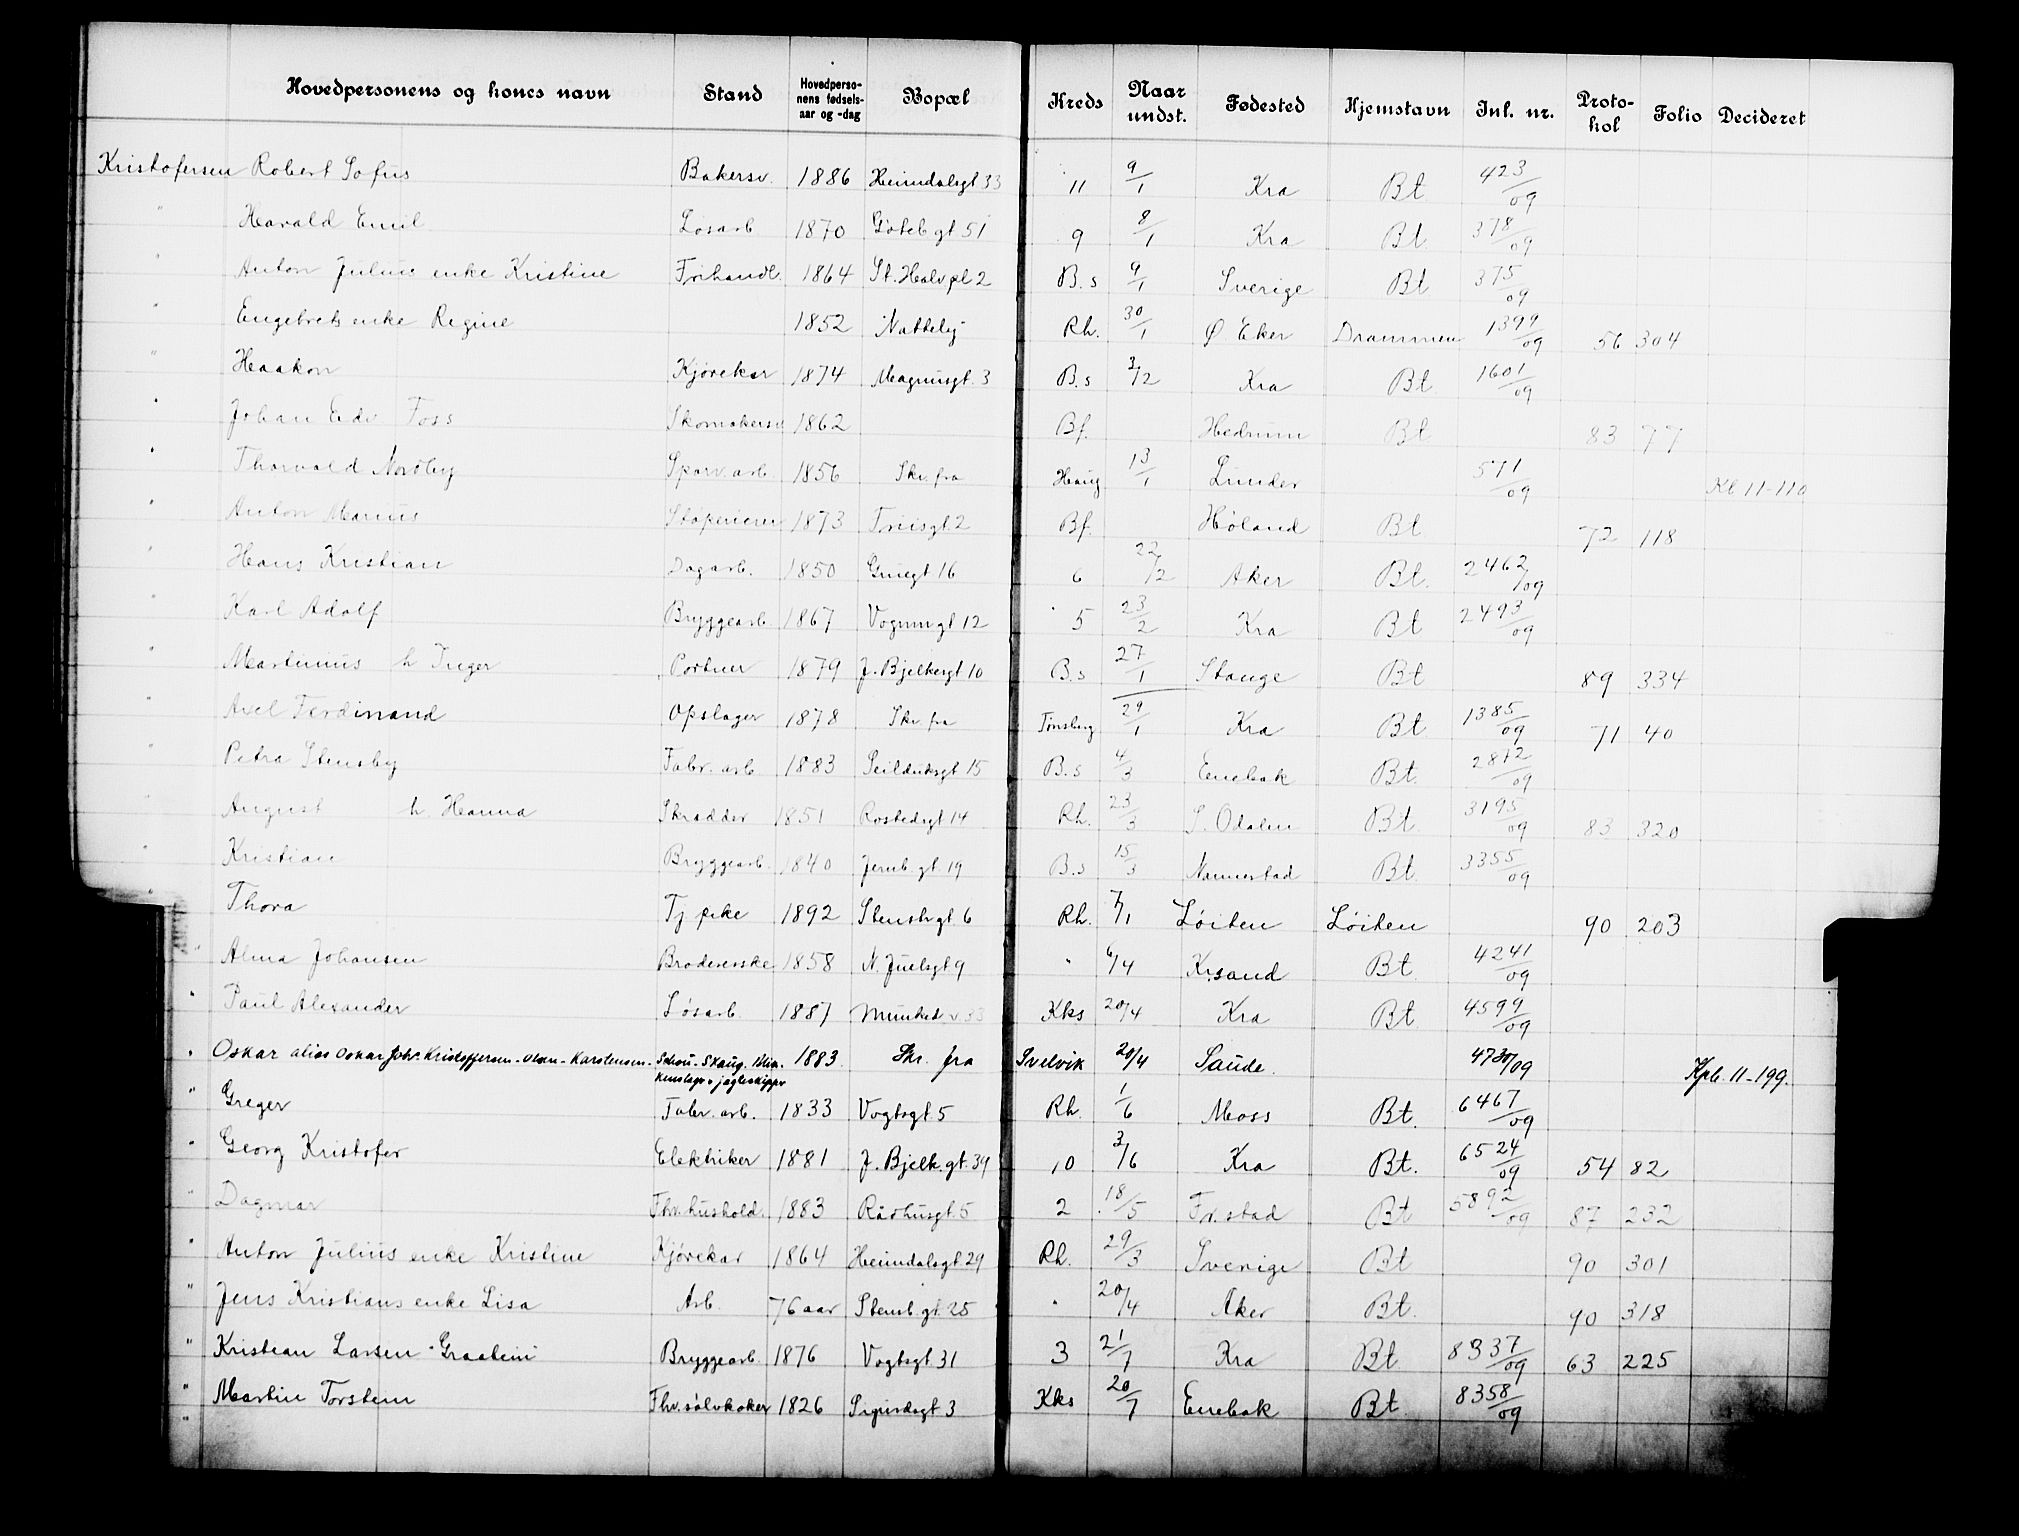 Hovedpersonens og hones navn Stand Hovedperso-nens fødsels-aar og -dag Bopæl Kreds Naar undst. Fødested Hjemstavn Inl. nr. Proto-kol Folio Decideret
Kristofersen Robert Sofus Bakersv. 1886 Heimdalsgt 33 11 9/1 Kra Bt 423/09
" Harald Emil Løsarb 1870 Göteb gt 51 9 8/1 Kra Bt. 378/09
" Anton Julius enke Kristine Frihandl. 1864 St. Halv pl 2 B.s 9/1 Sverige Bt 375/09
" Engebrets enke Regine 1852 Rh. 30/1 Ø Eker Drammen 1399/09 56 304
" Haakon Kjørekar 1874 Magnusgt. 3 B.s 3/2 Kra Bt 1601/09
" Johan Edv Foss Skomakersv 1862 Bf. Hedrum Bt 83 77
" Thorvald Nordby Sporv. arb. 1856 Skr. fra Haug 13/1 Lunder 571/09 Kl 11-110
" Anton Marius 1873 Friisgt 2 Bf. Høland Bt 72 118
" Hans Kristian Dagarb. 1850 Gruegt 16 6 22/2 Aker Bt. 2462/09
" Karl Adolf Bryggearb. 1867 Vognmgt 12 5 23/2 Kra Bt 2493/09
" Martinius h Inger Portner 1879 J. Bjelkesgt 10 B.s 27/1 Stange Bt 89 334
" Axel Ferdinand Opslager 1878 Skr. fra Tønsberg 29/1 Kra Bt 1385/09 71 40
" Petra Stensby Fabr. arb 1883 Seilduksgt 15 B.s 4/3 Enebak Bt. 2872/09
" August h. Hanna Skrædder 1851 Rostedsgt 14 Rh. 23/3 S. Odalen Bt. 3195/09 83 320
" Kristian Bryggearb. 1840 Jernb. gt. 19 B.s 15/3 Nannestad Bt. 3355/09
" Thora Tj pike 1892 Stensb. gt. 6 Rh. 7/1 Løiten Løiten 90 203
" Alma Johansen Brodererske 1858 N. Juelsgt 9 " 6/4 Krsand Bt. 4241/09
" Paul Alexander Løsarb. 1887 Munked v. 33 Kks 20/4 Kra Bt 4599/09
" Oskar alias Oskar Joh. Kristoffersen - Olsen - Karstensen - Schou - Skaug. 1883. Skr. fra Svelvik 20/4 Saude. 4730/09 Kpb. 11-199.
" Greger Fabr. arb. 1833 Vogtsgt. 5 Rh. 1/6 Moss Bt. 6467/09
" Georg Kristofer Elektriker 1881 J. Bjelk. gt. 39 10 3/6 Kra Bt. 6524/09 54 82
" Dagmar Fhv. hushold. 1883 Rådhusgt. 5 2 18/5 Fr. stad Bt 5892/09 87 232
" Anton Julius enke Kristine Kjørekar 1864 Heimdalsgt. 29 Rh. 29/3 Sverige Bt 90 301
" Jens Kristians enke Lisa Arb. 76 aar Stensb. gt. 25 " 20/4 Aker Bt. 90 318
" Kristian Larsen "Graabein" Bryggearb. 1876 Vogtsgt 31 3 21/7 Kra Bt 8337/09 63 225
" Martin Torstein Fhv. sølvkoker 1826 Sigurdsgt 3 Kks 20/7 Enebak Bt. 8358/09
"